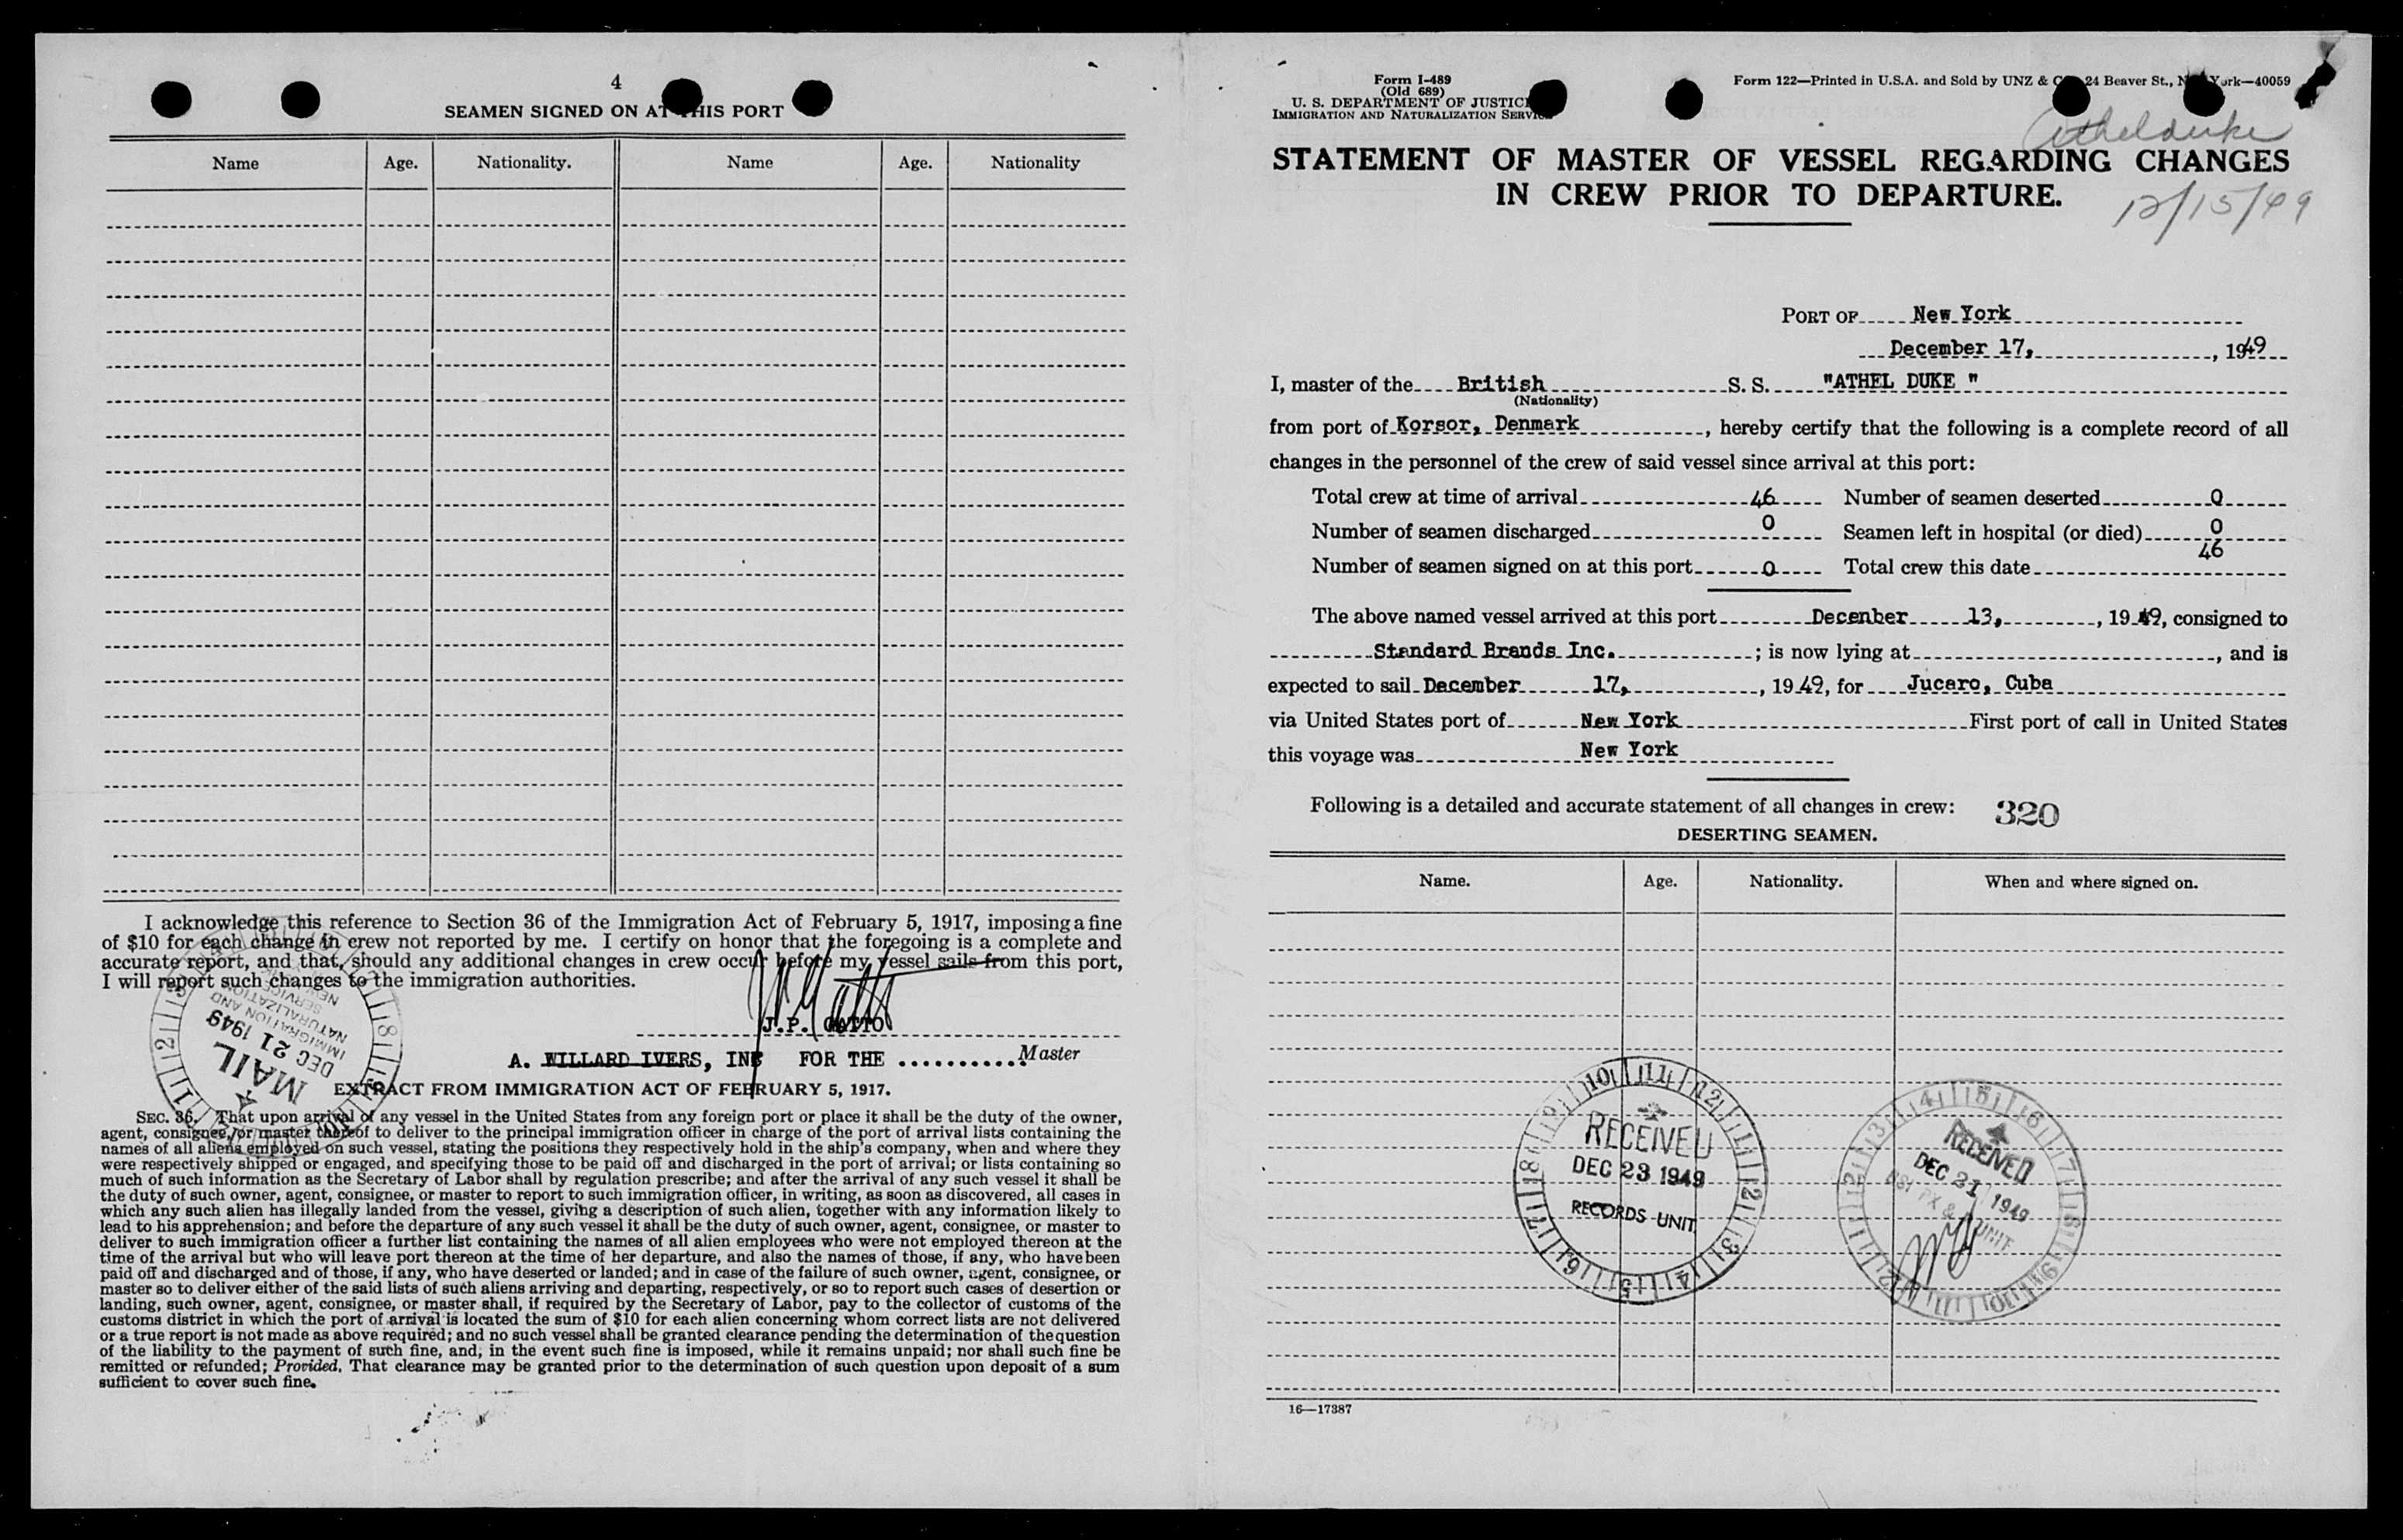 4
SEAMEN SIGNED ON AT THIS PORT
Name Age. Nationality. Name Age. Nationality
I acknowledge this reference to Section 36 of the Immigration Act of February 5, 1917, imposing a fine
of $10 for each change in crew not reported by me. I certify on honor that the foregoing is a complete and
accurate report, and that, should any additional changes in crew occur before my vessel sails from this port,
I will report such changes to the immigration authorities.
J.P. GATTO
A. WILLARD IVERS, INC FOR THE ........... Master
MAIL
DEC 21 1949
IMMIGRATION AND
NATURALIZATION
SERVICE
EXTRACT FROM IMMIGRATION ACT OF FEBRUARY 5, 1917.
SEC. 36. That upon arrival of any vessel in the United States from any foreign port or place it shall be the duty of the owner,
agent, consignee, or master thereof to deliver to the principal immigration officer in charge of the port of arrival lists containing the
names of all aliens employed on such vessel, stating the positions they respectively hold in the ship's company, when and where they
were respectively shipped or engaged, and specifying those to be paid off and discharged in the port of arrival; or lists containing so
much of such information as the Secretary of Labor shall by regulation prescribe; and after the arrival of any such vessel it shall be
the duty of such owner, agent, consignee, or master to report to such immigration officer, in writing, as soon as discovered, all cases in
which any such alien has illegally landed from the vessel, giving a description of such alien, together with any information likely to
lead to his apprehension; and before the departure of any such vessel it shall be the duty of such owner, agent, consignee, or master to
deliver to such immigration officer a further list containing the names of all alien employees who were not employed thereon at the
time of the arrival but who will leave port thereon at the time of her departure, and also the names of those, if any, who have been
paid off and discharged and of those, if any, who have deserted or landed; and in case of the failure of such owner, agent, consignee, or
master so to deliver either of the said lists of such aliens arriving and departing, respectively, or so to report such cases of desertion or
landing, such owner, agent, consignee, or master shall, if required by the Secretary of Labor, pay to the collector of customs of the
customs district in which the port of arrival is located the sum of $10 for each alien concerning whom correct lists are not delivered
or a true report is not made as above required; and no such vessel shall be granted clearance pending the determination of the question
of the liability to the payment of such fine, and, in the event such fine is imposed, while it remains unpaid; nor shall such fine be
remitted or refunded; Provided, That clearance may be granted prior to the determination of such question upon deposit of a sum
sufficient to cover such fine.
Form I-489
(Old 689)
U. S. DEPARTMENT OF JUSTICE
IMMIGRATION AND NATURALIZATION SERVICE
Form 122—Printed in U.S.A. and Sold by UNZ & Co 24 Beaver St., New York—40059
Athelduke
STATEMENT OF MASTER OF VESSEL REGARDING CHANGES
IN CREW PRIOR TO DEPARTURE.
12/15/49
PORT OF New York
December 17, , 1949
I, master of the British S. S. "ATHEL DUKE "
(Nationality)
from port of Korsor, Denmark , hereby certify that the following is a complete record of all
changes in the personnel of the crew of said vessel since arrival at this port:
Total crew at time of arrival 46 Number of seamen deserted 0
Number of seamen discharged 0 Seamen left in hospital (or died) 0
Number of seamen signed on at this port 0 Total crew this date 46
The above named vessel arrived at this port Decenber 13, , 1949, consigned to
Standard Brands Inc. ; is now lying at , and is
expected to sail December 17, , 1949, for Jucaro, Cuba
via United States port of New York First port of call in United States
this voyage was New York
Following is a detailed and accurate statement of all changes in crew: 320
DESERTING SEAMEN.
Name. Age. Nationality. When and where signed on.
RECEIVED
DEC 23 1949
RECORDS UNIT
RECEIVED
DEC 21 1949
UNIT
16—17387